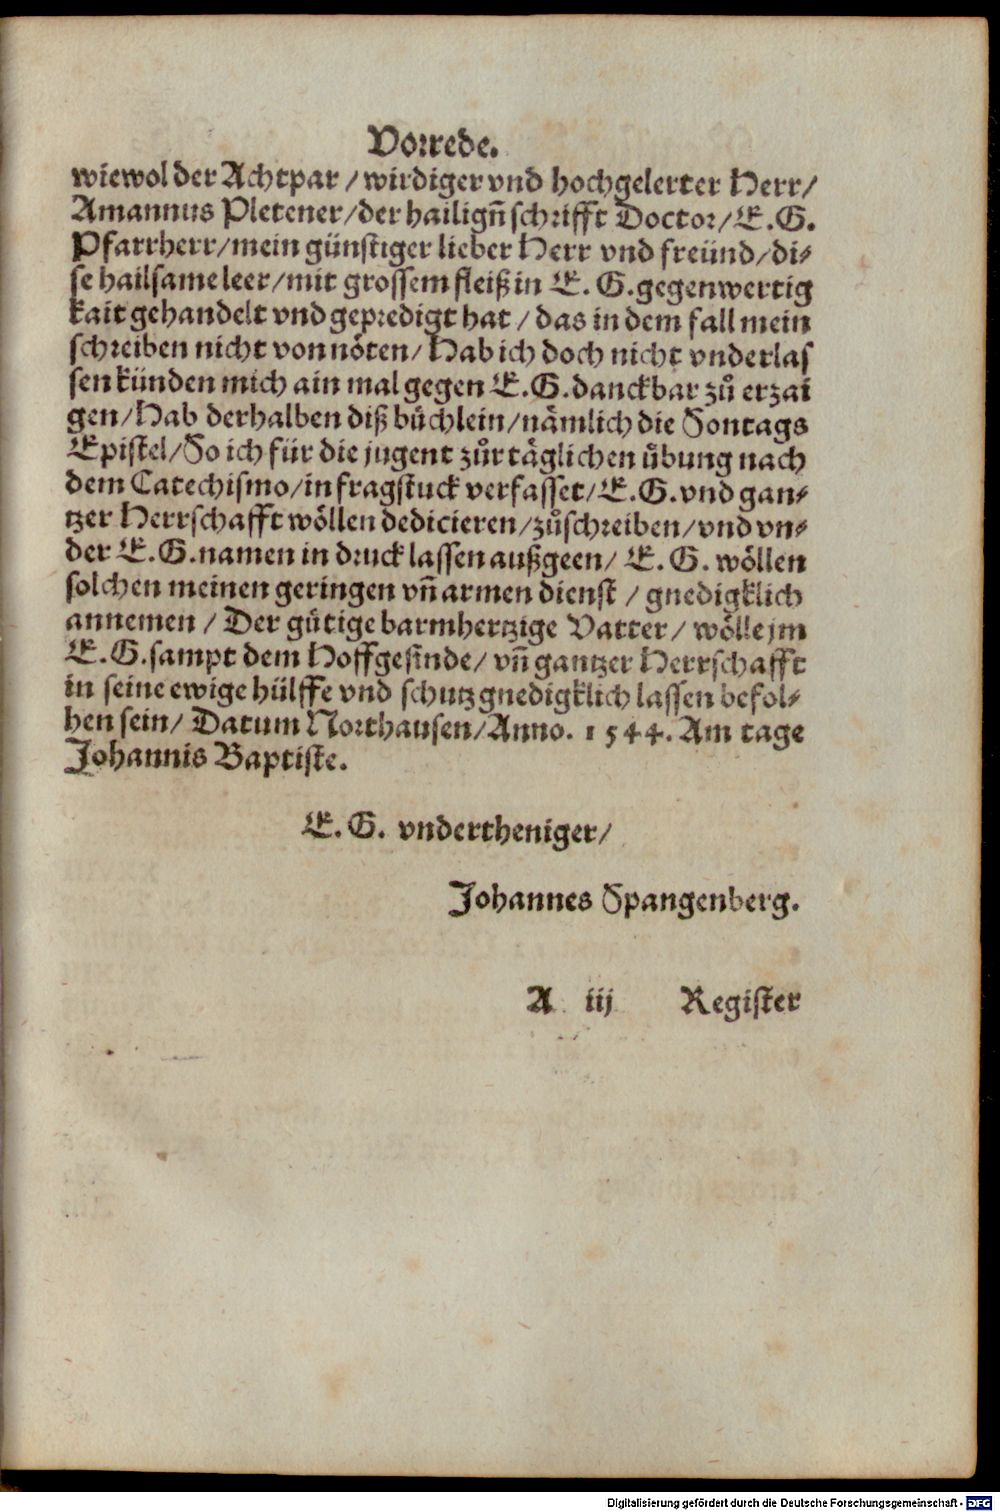 Vorrede.
wiewol der Achtpar / wirdiger vnd hochgelerter Herr /
Amannus Pletener / der hailigñ schrifft Doctor / E. G.
Pfarrherr / mein günstiger lieber Herr vnd freünd / di-
se hailsame leer / mit grossem fleiß in E. G. gegenwertig
kait gehandelt vnd geprediget hat / das in dem fall mein
schreiben nicht von nöten / Hab ich doch nicht vnderlas
sen künden mich ain mal gegen E. G. danckbar zů erzai
gen / Hab derhalben diß büchlein / nämlich die Sontags
Epistel / So ich für die jugent zůr täglichen übung nach
dem Catechismo / in fragstuck verfasset / E. G. vnd gan-
tzer Herrschafft wöllen dedicieren / zůschreiben / vnd vn-
der E. G. namen in druck lassen außgeen / E. G. wöllen
solchen meinen geringen vñ armen dienst / gnedigklich
annemen / Der gütige barmhertzige Vatter / wölle jm
E. G. sampt dem Hoffgesinde / vñ gantzer Herrschafft
in seine ewige hülffe vnd schutz gnedigklich lassen befol-
hen sein / Datum Northausen / Anno. 1544. Am tage
Johannis Baptiste.
E. G. vndertheniger /
Johannes Spangenberg.
A iij Register
Digitalisierung gefördert durch die Deutsche Forschungsgemeinschaft - DFG